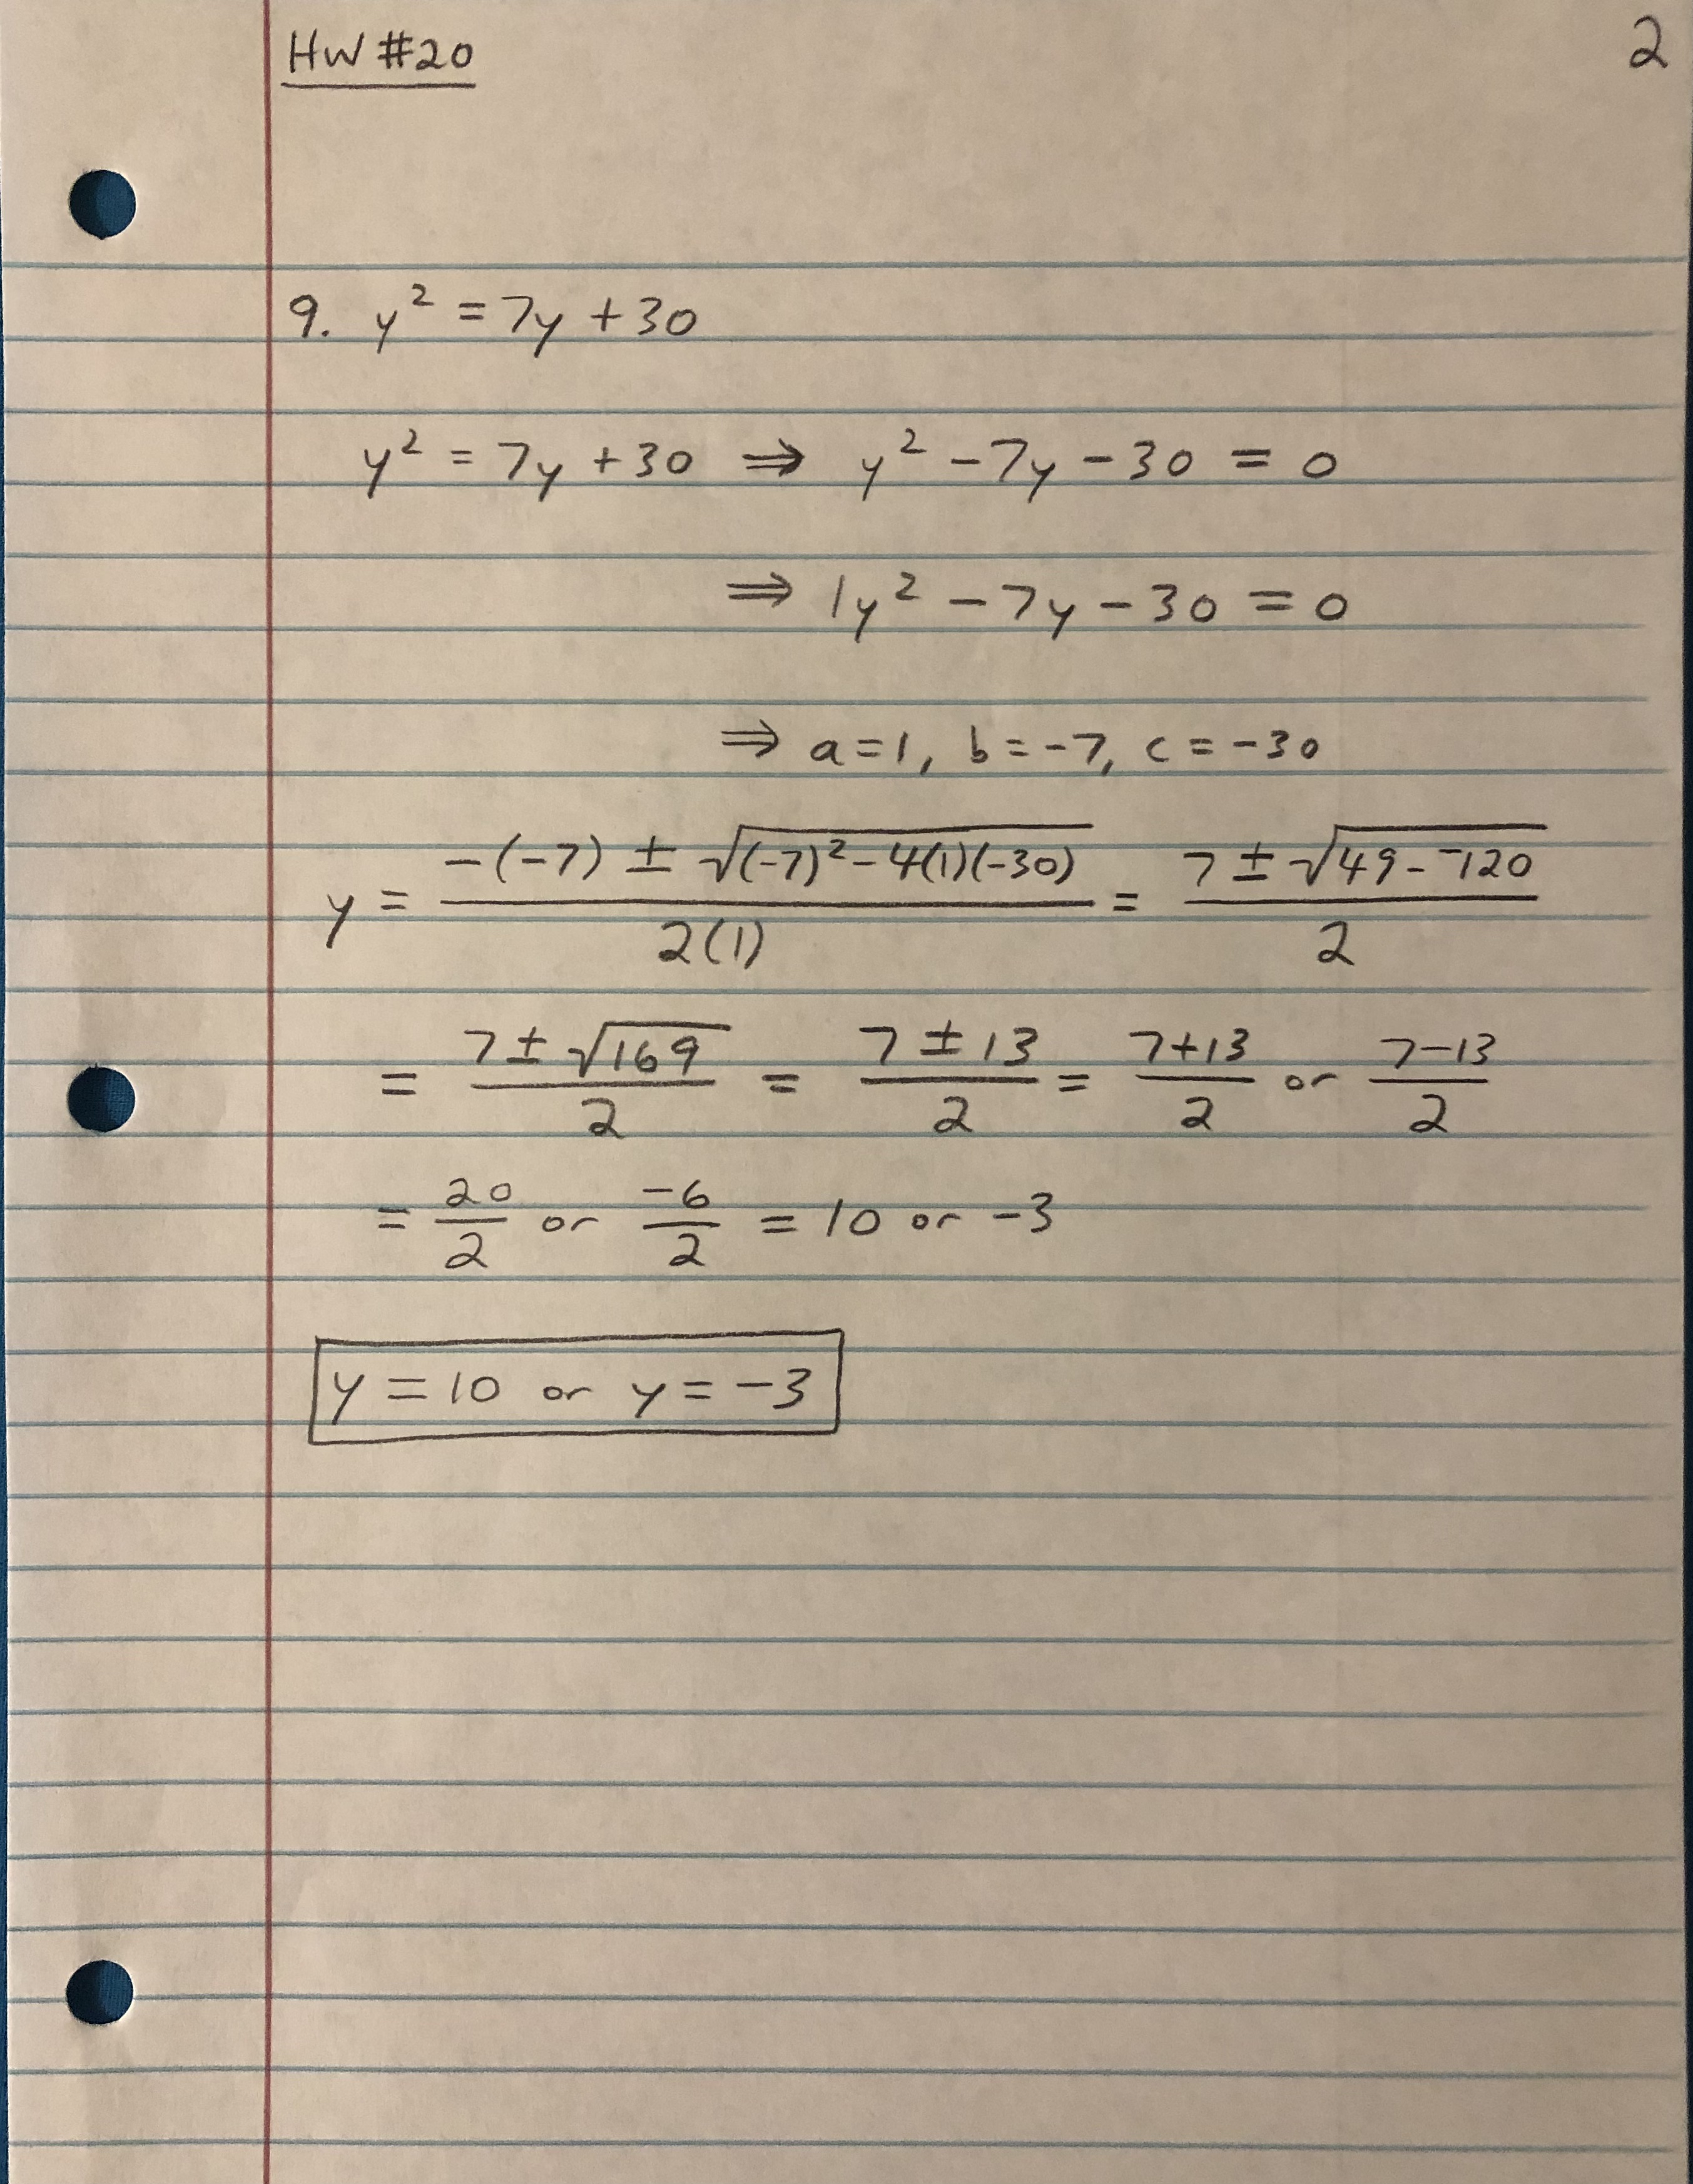 HW #20 2
9. y² = 7y + 30
y² = 7y + 30 ⇒ y² - 7y - 30 = 0
⇒ 1y² - 7y - 30 = 0
⇒ a = 1, b = -7, c = -30
y = (-(-7) ± √((-7)² - 4(1)(-30)))/(2(1)) = (7 ± √(49 - ⁻120))/2
= (7 ± √169)/2 = (7 ± 13)/2 = (7+13)/2 or (7-13)/2
= 20/2 or -6/2 = 10 or -3
y = 10 or y = -3